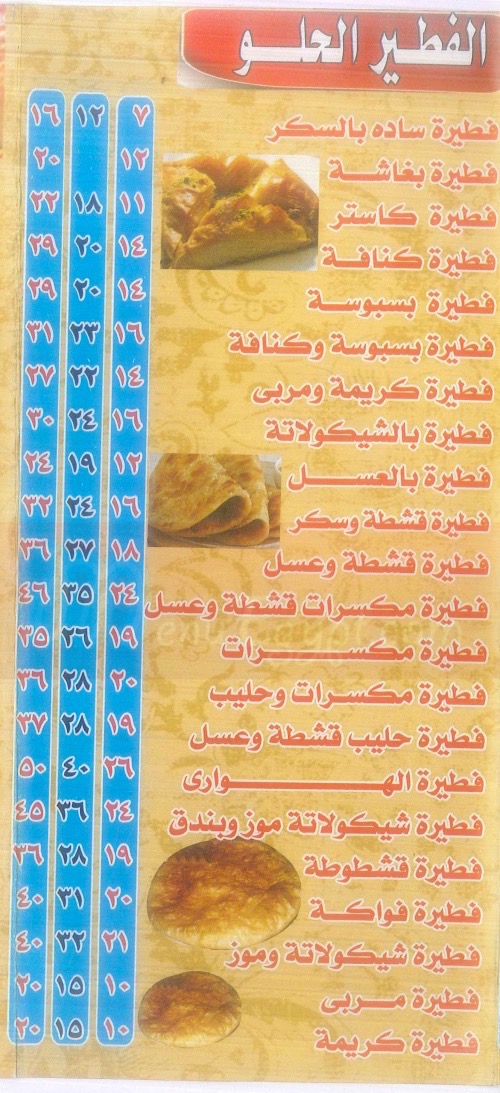 الفطير الحلو
فطيرة ساده بالسكر ٧ ١٢ ١٦
فطيرة بغاشة ١٢ ٢٠
فطيرة كاستر ١١ ١٨ ٢٢
فطيرة كنافة ١٤ ٢٠ ٢٩
فطيرة بسبوسة ١٤ ٢٠ ٢٩
فطيرة بسبوسة وكنافة ١٦ ٢٣ ٣١
فطيرة كريمة ومربى ١٤ ٢٢ ٢٧
فطيرة بالشيكولاتة ١٦ ٢٤ ٣٠
فطيرة بالعسل ١٢ ١٩ ٢٤
فطيرة قشطة وسكر ١٦ ٢٤ ٣٢
فطيرة قشطة وعسل ١٨ ٢٧ ٣٦
فطيرة مكسرات قشطة وعسل ٢٤ ٣٥ ٤٦
فطيرة مكسرات ١٩ ٢٦ ٣٥
فطيرة مكسرات وحليب ٢٠ ٢٨ ٣٦
فطيرة حليب قشطة وعسل ١٩ ٢٨ ٣٧
فطيرة الهوارى ٢٦ ٤٠ ٥٠
فطيرة شيكولاتة موز وبندق ٢٤ ٣٦ ٤٥
فطيرة قشطوطة ١٩ ٢٨ ٣٦
فطيرة فواكة ٢٠ ٣١ ٤٠
فطيرة شيكولاتة وموز ٢١ ٣٢ ٤٠
فطيرة مربى ١٠ ١٥ ٢٠
فطيرة كريمة ١٠ ١٥ ٢٠